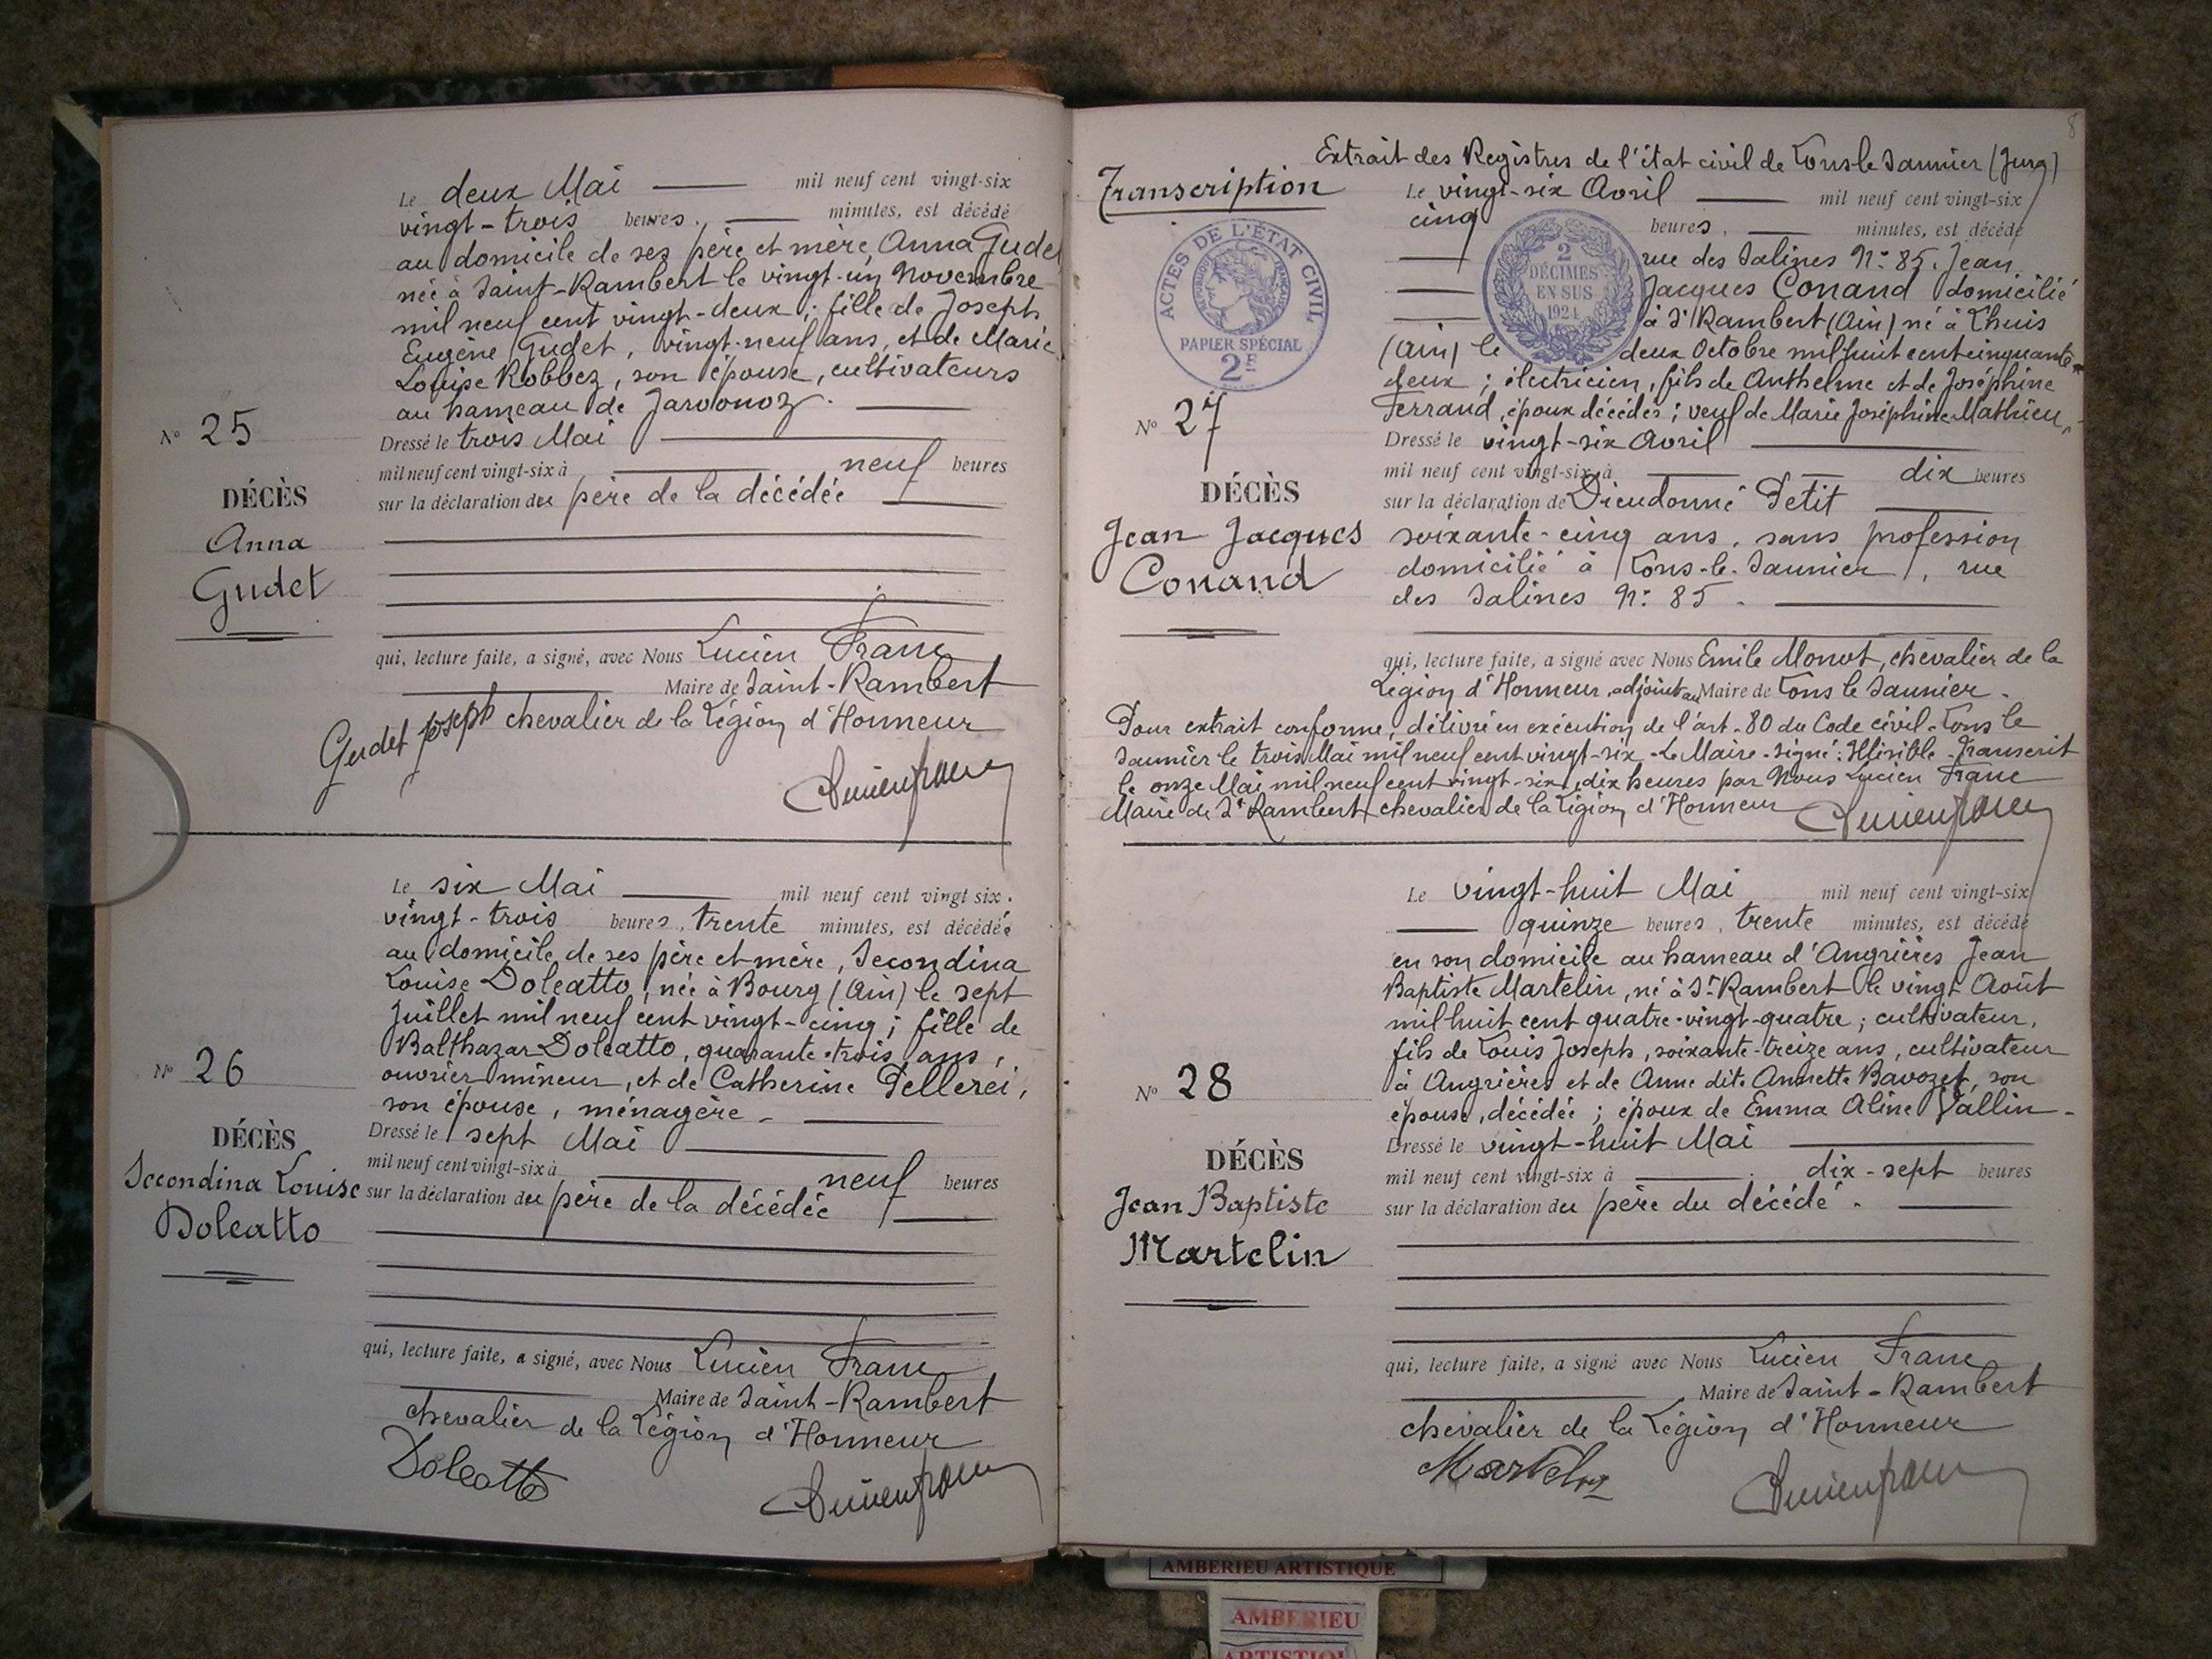 Le deux Mai mil neuf cent vingt-six
vingt-trois heures, minutes, est décédé
au domicile de ses père et mère, Anna Gudet
née à Saint-Rambert le vingt-un Novembre
mil neuf cent vingt-deux ; fille de Joseph
Eugène Gudet, vingt-neuf ans, et de Marie
Louise Robbez, son épouse, cultivateurs
au hameau de Javornoz.
N° 25
Dressé le trois Mai
mil neuf cent vingt-six à neuf heures
DÉCÈS
sur la déclaration du père de la décédée
Anna
Gudet
qui, lecture faite, a signé, avec Nous Lucien Franc
Maire de Saint-Rambert
chevalier de la Légion d'Honneur
Gudet Joseph
Lucien Franc
Le six Mai mil neuf cent vingt six.
vingt-trois heures, trente minutes, est décédée
au domicile de ses père et mère, Secondina
Louise Doleatto, née à Bourg (Ain) le sept
Juillet mil neuf cent vingt-cinq ; fille de
Balthazar Doleatto, quarante-trois ans,
ouvrier mineur, et de Catherine Pellerei,
son épouse, ménagère -
N° 26
Dressé le sept Mai
mil neuf cent vingt-six à neuf heures
DÉCÈS
sur la déclaration du père de la décédée
Secondina Louise
Doleatto
qui, lecture faite, a signé, avec Nous Lucien Franc
Maire de Saint-Rambert
chevalier de la Légion d'Honneur
Doleatto
Lucien Franc
8
Extrait des Registres de l'état civil de Lons le Saunier (Jura)
Transcription
Le vingt-six Avril mil neuf cent vingt-six
cinq heures, minutes, est décédé
rue des Salines N° 85. Jean
Jacques Conand domicilié
à St Rambert (Ain) né à Lhuis
(Ain) le deux Octobre mil huit cent cinquante-
deux ; électricien, fils de Anthelme et de Joséphine
Ferrand, époux décédés ; veuf de Marie Joséphine Mathieu
ACTES DE L'ÉTAT CIVIL
RÉPUBLIQUE FRANÇAISE
PAPIER SPÉCIAL
2F
2
DÉCIMES
EN SUS
1924
N° 27
Dressé le vingt-six Avril
mil neuf cent vingt-six à dix heures
DÉCÈS
sur la déclaration de Dieudonné Petit
Jean Jacques
Conand
soixante-cinq ans, sans profession
domicilié à Lons-le-Saunier, rue
des Salines N° 85.
qui, lecture faite, a signé avec Nous Emile Monot, chevalier de la
Légion d'Honneur, adjoint au Maire de Lons le Saunier.
Pour extrait conforme, délivré en exécution de l'art. 80 du Code civil. Lons le
Saunier le trois Mai mil neuf cent vingt-six - Le Maire - signé : Illisible - Transcrit
le onze Mai mil neuf cent vingt-six, dix heures par Nous Lucien Franc
Maire de St Rambert chevalier de la Légion d'Honneur
Lucien Franc
Le vingt-huit Mai mil neuf cent vingt-six
quinze heures, trente minutes, est décédé
en son domicile au hameau d'Angrières Jean
Baptiste Martelin, né à St Rambert le vingt Août
mil huit cent quatre-vingt-quatre ; cultivateur,
fils de Louis Joseph, soixante-treize ans, cultivateur
à Angrières et de Anne dite Annette Bavozet, son
épouse, décédée ; époux de Emma Aline Vallin -
N° 28
Dressé le vingt-huit Mai
mil neuf cent vingt-six à dix-sept heures
DÉCÈS
sur la déclaration du père du décédé.
Jean Baptiste
Martelin
qui, lecture faite, a signé avec Nous Lucien Franc
Maire de Saint-Rambert
chevalier de la Légion d'Honneur
Martelin
Lucien Franc
AMBERIEU ARTISTIQUE
AMBERIEU
ARTISTIQUE